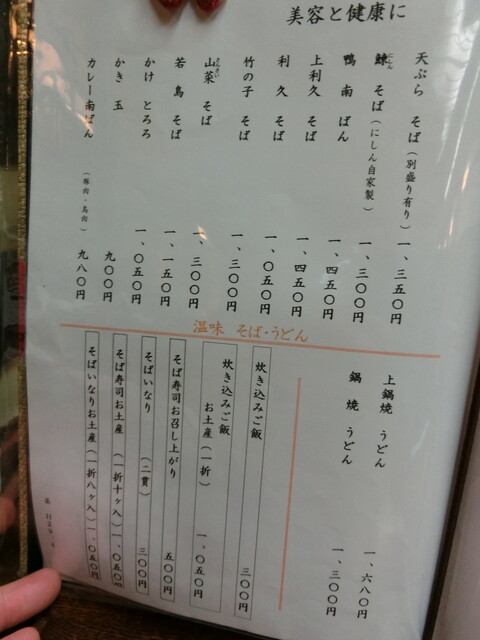 美容と健康に
天ぷら そば(別盛り有り) 一、三五〇円
鰊 そば(にしん自家製) 一、三〇〇円
鴨 南 ばん 一、四五〇円
上利久 そば 一、四五〇円
利 久 そば 一、〇五〇円
竹の子 そば 一、三〇〇円
山菜 そば 一、三〇〇円
若 鳥 そば 一、一五〇円
かけ とろろ 一、〇五〇円
かき 玉 九〇〇円
カレー南ばん (豚肉・鳥肉) 九八〇円
温味 そば・うどん
上鍋焼 うどん 一、六八〇円
鍋 焼 うどん 一、三〇〇円
炊き込みご飯 三〇〇円
炊き込みご飯
お土産(一折) 一、〇五〇円
そば寿司お召し上がり 五〇〇円
そばいなり (二貫) 三〇〇円
そば寿司お土産 (一折十ヶ入) 一、〇五〇円
そばいなりお土産(一折八ヶ入) 一、〇五〇円